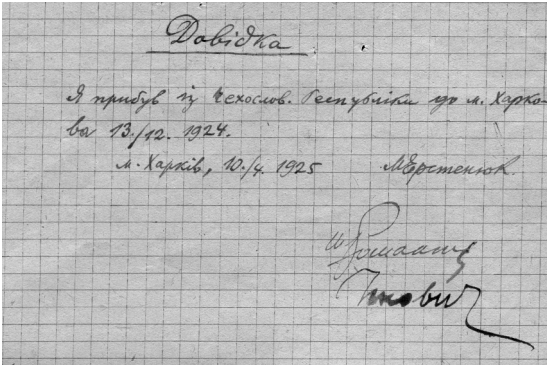 Довідка
Я прибув із Чехослов. Республіки до м. Харко-
ва 13./12. 1924.
м. Харків, 10./4. 1925